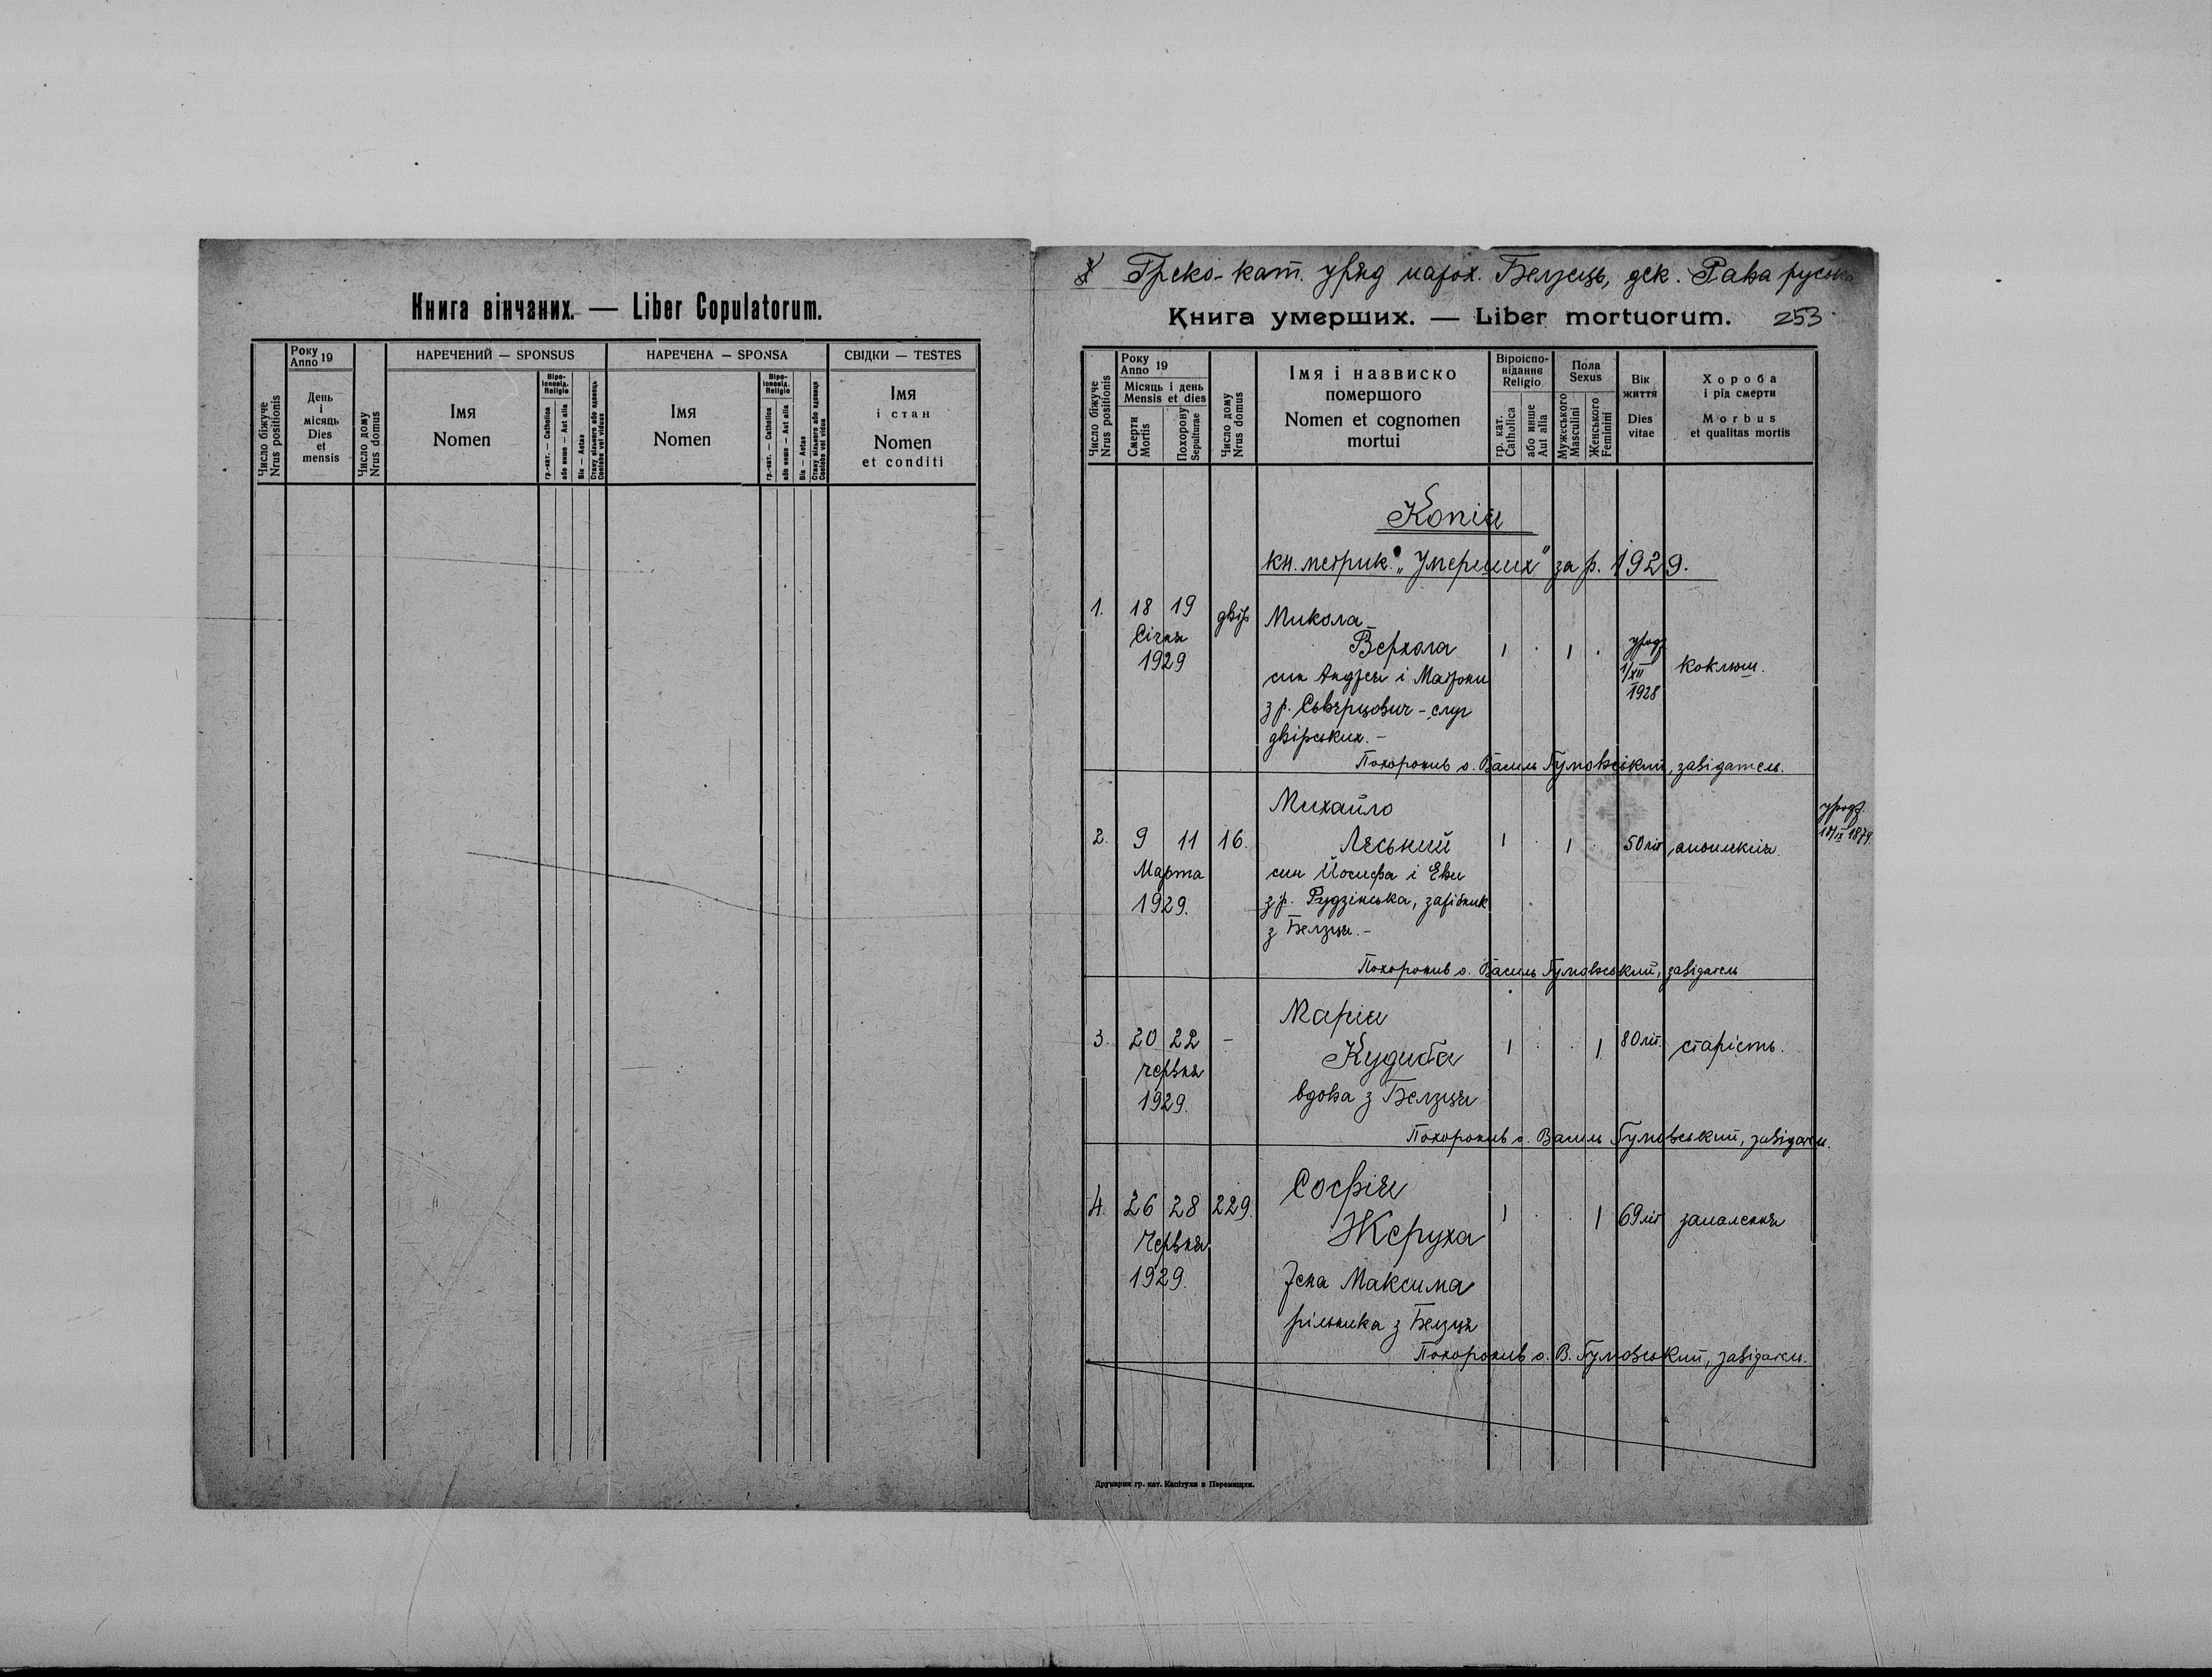 Книга вінчаних. — Liber Copulatorum.
Число біжуче
Nrus positionis
Року
Anno 19
День
і
місяць
Dies
et
mensis
Число дому
Nrus domus
НАРЕЧЕНИЙ — SPONSUS
Імя
Nomen
Віро-
ісповід.
Religio
гр.-кат. — Catholica
або инше — Aut alia
Вік — Aetas
Стану вільного або вдовець
Coelebs vel viduus
НАРЕЧЕНА — SPONSA
Імя
Nomen
Віро-
ісповід.
Religio
гр.-кат. — Catholica
або инше — Aut alia
Вік — Aetas
СВІДКИ — TESTES
Імя
і стан
Nomen
et conditi
Греко-кат. уряд парох. Белзець, дек. Рава руська
Книга умерших. — Liber mortuorum. 253
Число біжуче
Nrus positionis
Року
Anno 19
Місяць і день
Mensis et dies
Смерти
Mortis
Похорону
Sepulturae
Число дому
Nrus domus
Імя і назвиско
помершого
Nomen et cognomen
mortui
Віроіспо-
віданнє
Religio
гр. кат.
Catholica
або инше
Aut alia
Пола
Sexus
Мужеського
Masculini
Женського
Feminini
Вік
життя
Dies
vitae
Хороба
і рід смерти
Morbus
et qualitas mortis
Копія
кн. метрик. „Умерших" за р. 1929.
1. 18 19 двір Микола
Січня Верхола 1 · 1 · урод.
1929 син Андрея і Матрони 1/XII коклюш.
1928
з р. - слуг
двірських. -
Похоронив о. Василь Гумовський, завідатель.
Михайло урод.
2. 9 11 16. Ляський 1 · 1 · 50 літ апоплексія. IX 1879.
Марта син Йосифа і Еви
1929. з р. Рудзінська, зарібник
з Белзця. -
Похоронив о. Василь Гумовський, завідатель
Марія
3. 20 22 - Кудиба 1 · · 1 80 літ. старість.
червня
1929. вдова з Белзця
Похоронив о. Василь Гумовський, завідатель.
Софія
4. 26 28 229. Жеруха 1 · · 1 69 літ запалення
Червня
1929. жена Максима
рільника з Белзця
Похоронив о. В. Гумовський, завідатель.
Друкарня гр. кат. Капітули в Перемишли.